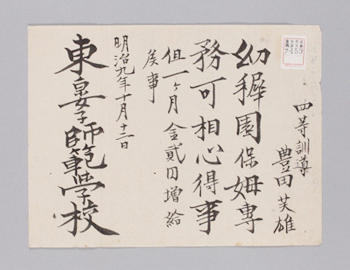 四等訓導
豊田芙雄
幼穉園保姆專
務可相心得事
但一ヶ月金貳円増給
矦事
明治九年十月十二日
東京女子師範学校